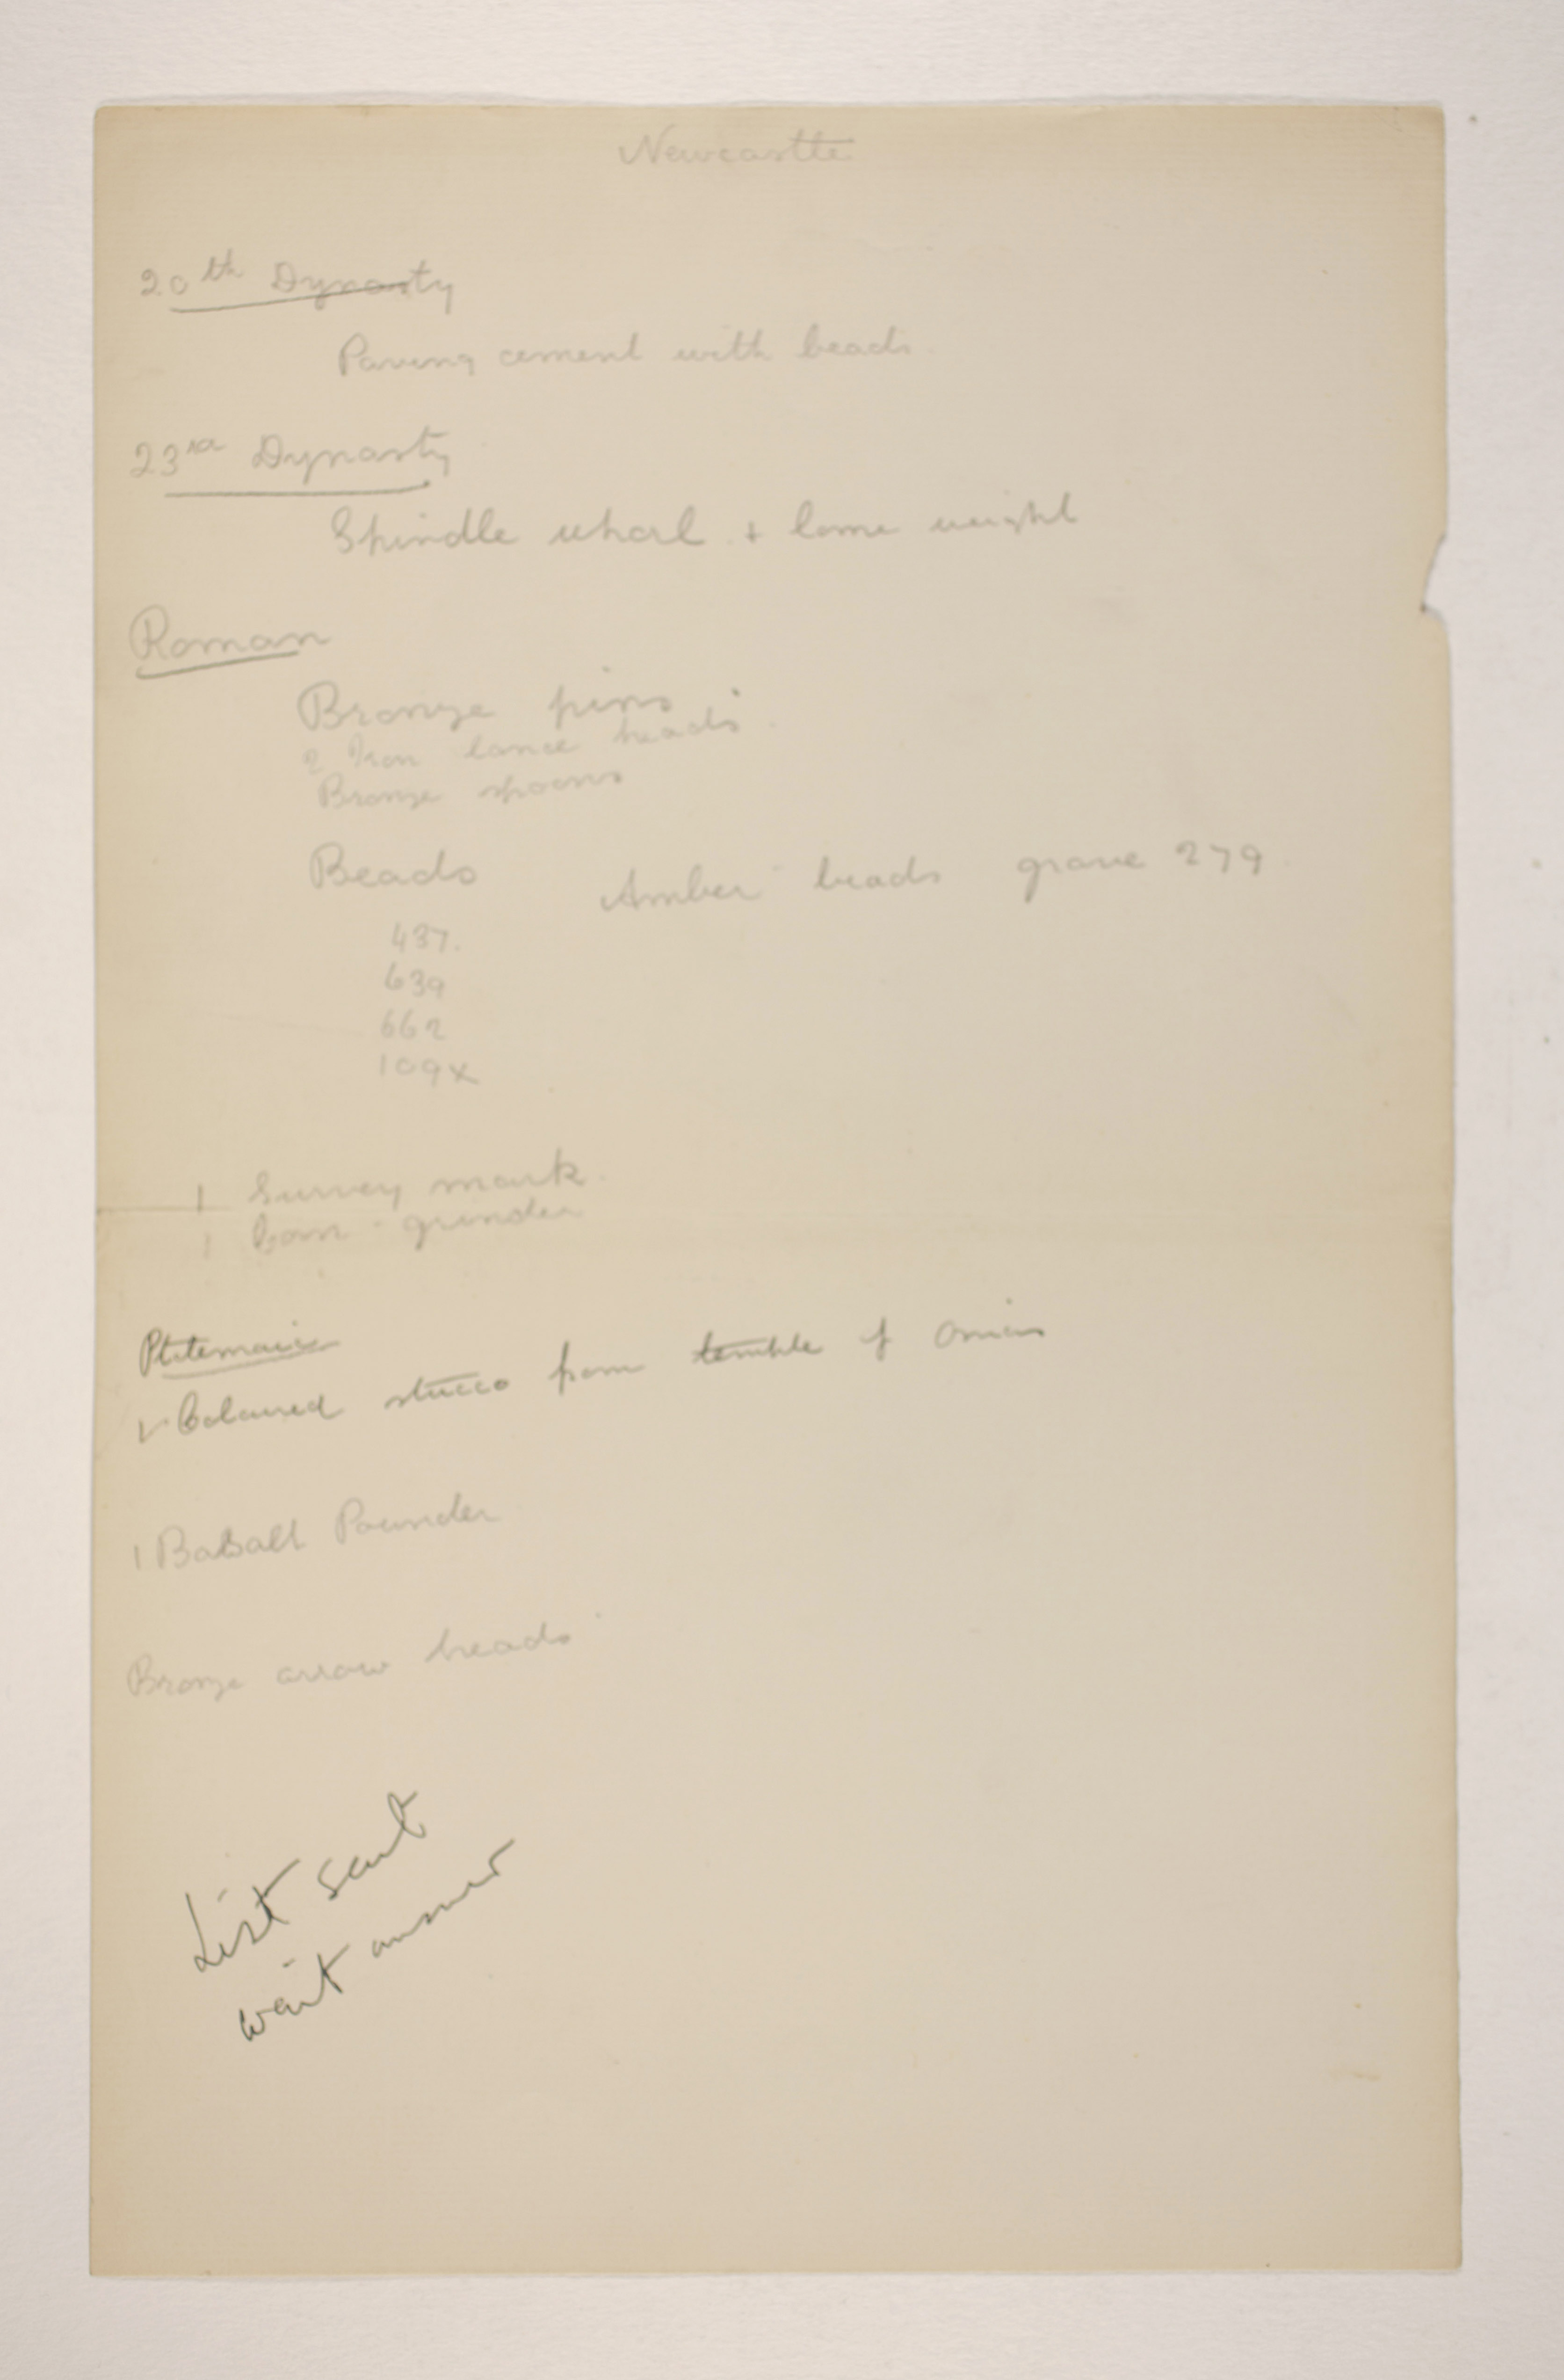 Newcastle
20th Dynasty
Paving cement with beads.
23rd Dynasty
Spindle whorl + lome weight
Roman
Bronze pins
2 Iron lance heads.
Bronze spoons
Beads Amber beads grave 279.
437.
639
662
109x
1 Survey mark.
1 Corn-grinder
Ptolemaic
Coloured stucco from temple of Onias
1 Basalt Pounder
Bronze arrow heads
List sent
wait answer